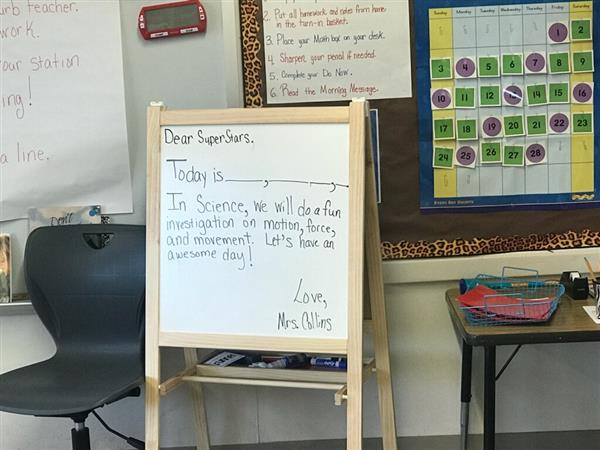 urb teacher.
work.
your station
ing!
a line.
2. Put all homework and notes from home
in the turn-in basket.
3. Place your Math box on your desk.
4. Sharpen your pencil if needed.
5. Complete your Do Now.
6. Read the Morning Message.
Dear SuperStars.
Today is ____, ____ __, __
In Science, we will do a fun
investigation on motion, force,
and movement. Let's have an
awesome day!
Love,
Mrs. Collins
Sunday Monday Tuesday Wednesday Thursday Friday Saturday
1 2
3 4 5 6 7 8 9
10 11 12 13 14 15 16
17 18 19 20 21 22 23
24 25 26 27 28